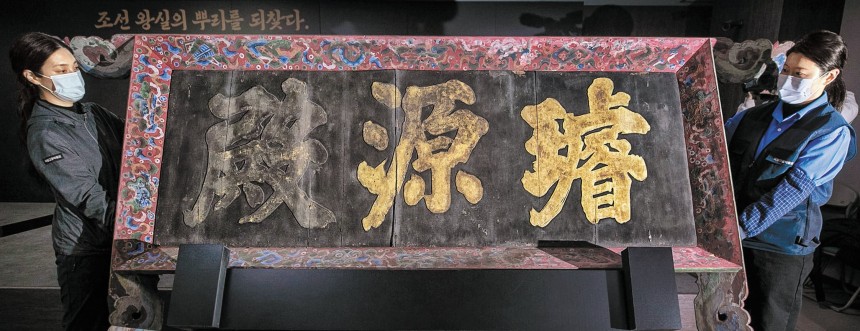 조선 왕실의 뿌리를 되찾다.
璿源殿